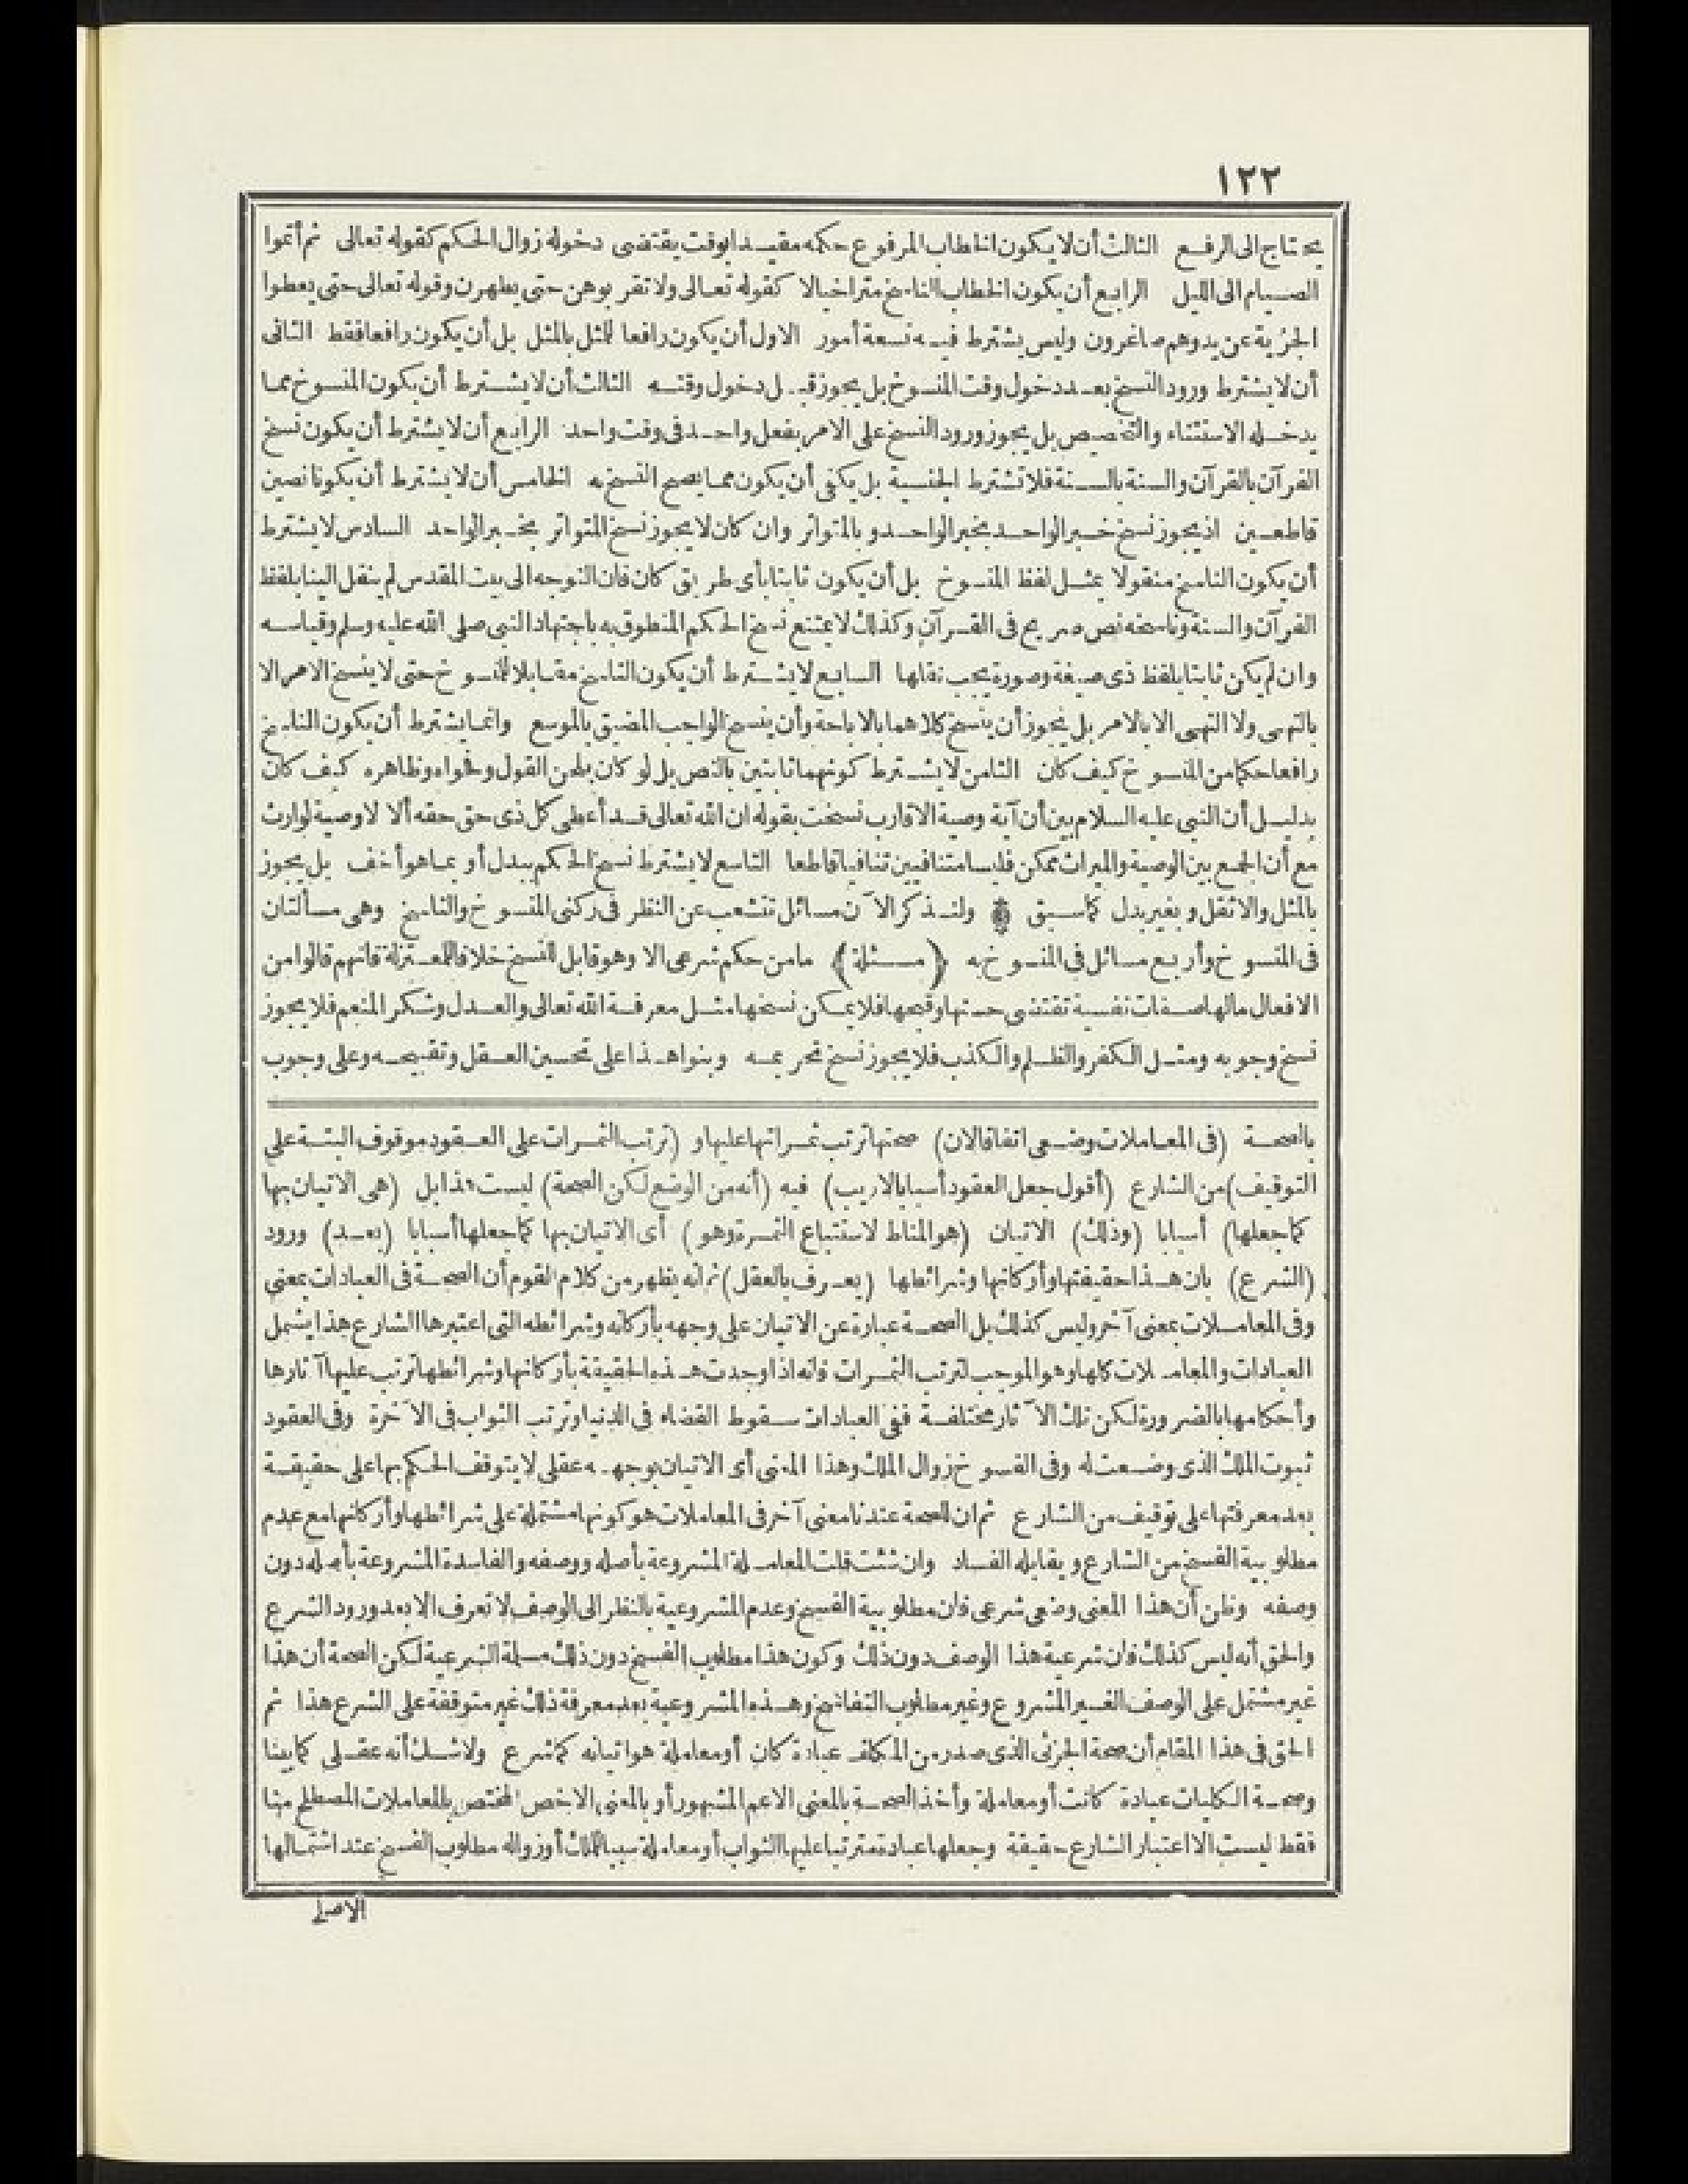 ١٢٢
يحتاج الى الرفع الثالث أن لا يكون الخطاب المرفوع حكمه مقيدا بوقت يقتضى دخوله زوال الحكم كقوله تعالى ثم أتموا
الصيام الى الليل الرابع أن يكون الخطاب الناسخ متراخيا لا كقوله تعالى ولا تقربوهن حتى يطهرن وقوله تعالى حتى يعطوا
الجزية عن يد وهم صاغرون وليس يشترط فيه تسعة أمور الاول أن يكون رافعا للمثل بالمثل بل أن يكون رافعا فقط الثانى
أن لا يشترط ورود النسخ بعد دخول وقت المنسوخ بل يجوز قبل دخول وقته الثالث أن لا يشترط أن يكون المنسوخ مما
يدخله الاستثناء والتخصيص بل يجوز ورود النسخ على الامر بفعل واحد فى وقت واحد الرابع أن لا يشترط أن يكون نسخ
القرآن بالقرآن والسنة بالسنة فلا تشترط الجنسية بل يكفى أن يكون مما يصح النسخ به الخامس أن لا يشترط أن يكونا نصين
قاطعين اذ يجوز نسخ خبر الواحد بخبر الواحد و بالمتواتر وان كان لا يجوز نسخ المتواتر بخبر الواحد السادس لا يشترط
أن يكون الناسخ منقولا بمثل لفظ المنسوخ بل أن يكون ثابتا بأى طريق كان فان التوجه الى بيت المقدس لم ينقل الينا بلفظ
القرآن والسنة وناسخه نص صريح فى القرآن وكذلك لا يمتنع نسخ الحكم المنطوق به باجتهاد النبى صلى الله عليه وسلم وقياسه
وان لم يكن ثابتا بلفظ ذى صيغة وصورة يجب نقلها السابع لا يشترط أن يكون الناسخ مقابلا للمنسوخ حتى لا ينسخ الامر الا
بالنهى ولا النهى الا بالامر بل يجوز أن ينسخ كلاهما بالاباحة وأن ينسخ الواجب المضيق بالموسع وانما يشترط أن يكون الناسخ
رافعا حكما من المنسوخ كيف كان الثامن لا يشترط كونهما ثابتين بالنص بل لو كان بلحن القول وفحواه وظاهره كيف كان
بدليل أن النبى عليه السلام بين أن آية وصية الاقارب نسخت بقوله ان الله تعالى قد أعطى كل ذى حق حقه ألا لا وصية لوارث
مع أن الجمع بين الوصية والميراث ممكن فليسا متنافيين تنافيا قاطعا التاسع لا يشترط نسخ الحكم ببدل أو بما هو أخف بل يجوز
بالمثل والاثقل و بغير بدل كما سبق ولنذكر الآن مسائل تتشعب عن النظر فى ركنى المنسوخ والناسخ وهى مسألتان
فى المنسوخ وأربع مسائل فى المنسوخ به (مسئلة) ما من حكم شرعى الا وهو قابل للنسخ خلافا للمعتزلة فانهم قالوا من
الافعال مالها صفات نفسية تقتضى حسنها وقبحها فلا يمكن نسخها مثل معرفة الله تعالى والعدل وشكر المنعم فلا يجوز
نسخ وجوبه ومثل الكفر والظلم والكذب فلا يجوز نسخ تحريمه وبنوا هذا على تحسين العقل وتقبيحه وعلى وجوب
بالصحة (فى المعاملات وضعى اتفاقا لان) صحتها ترتب ثمراتها عليها و (ترتب الثمرات على العقود موقوف البتة على
التوقيف) من الشارع (أقول جعل العقود أسبابا لاريب) فيه (أنه من الوضع لكن الصحة) ليست هذا بل (هى الاتيان بها
كما جعلها) أسبابا (وذلك) الاتيان (هو المناط لاستتباع الثمرة وهو) أى الاتيان بها كما جعلها أسبابا (بعد) ورود
(الشرع) بان هذا حقيقتها وأركانها وشرائطها (يعرف بالعقل) ثم انه يظهر من كلام القوم أن الصحة فى العبادات بمعنى
وفى المعاملات بمعنى آخر وليس كذلك بل الصحة عبارة عن الاتيان على وجهه بأركانه وشرائطه التى اعتبرها الشارع هذا يشمل
العبادات والمعاملات كلها وهو الموجب لترتب الثمرات فانه اذا وجدت هذه الحقيقة بأركانها وشرائطها ترتب عليها آثارها
وأحكامها بالضرورة لكن تلك الآثار مختلفة ففى العبادات سقوط القضاء فى الدنيا وترتب الثواب فى الآخرة وفى العقود
ثبوت الملك الذى وضعت له وفى الفسوخ زوال الملك وهذا المعنى أى الاتيان بوجهه عقلى لا يتوقف الحكم بها على حقيقة
بعد معرفتها على توقيف من الشارع ثم ان للصحة عندنا معنى آخر فى المعاملات هو كونها مشتملة على شرائطها وأركانها مع عدم
مطلوبية الفسخ من الشارع و يقابله الفساد وان شئت قلت المعاملة المشروعة بأصله ووصفه والفاسدة المشروعة بأصله دون
وصفه وظن أن هذا المعنى وضعى شرعى فان مطلوبية الفسخ وعدم المشروعية بالنظر الى الوصف لا تعرف الا بعد ورود الشرع
والحق أنه ليس كذلك فان شرعية هذا الوصف دون ذلك وكون هذا مطلوب الفسخ دون ذلك مسلمة الشرعية لكن الصحة أن هذا
غير مشتمل على الوصف الغير المشروع وغير مطلوب التفاسخ وهذه المشروعية بعد معرفة ذلك غير متوقفة على الشرع هذا ثم
الحق فى هذا المقام أن صحة الجزئى الذى صدر من المكلف عبادة كان أو معاملة هو اتيانه كما شرع ولا شك أنه عقلى كما بينا
وصحة الكليات عبادة كانت أو معاملة وأخذ الصحة بالمعنى الاعم المشهور أو بالمعنى الاخص المختص بالمعاملات المصطلح منا
فقط ليست الا اعتبار الشارع حقيقة وجعلها عبادة مترتبا عليها الثواب أو معاملة سببا للملك أو زواله مطلوب الفسخ عند اشتمالها
الاصلى